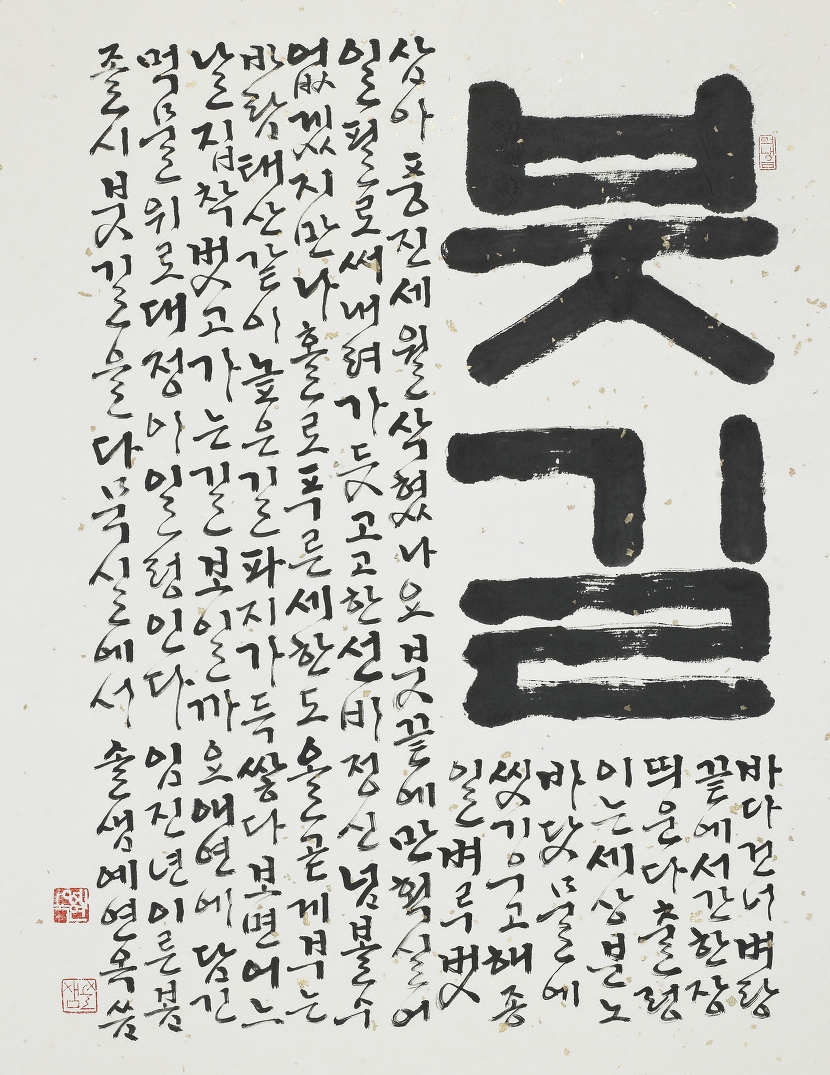 붓길
바다건너벼랑
끝에서간한장
띄운다출렁
이는세상분노
바닷물에
씻기우고해종
일벼루벗
삼아풍진세월삭혔나요붓끝에만획실어
일필로써내려가듯고고한선비정신넘볼수
없겠지만나홀로푸른세한도올곧게부는
바람태산같이높은길파지가득쌓다보면어느
날집착벗고가는길보일까요애연에담긴
먹물위로대정이일렁인다 임진년이른봄
졸시붓길을다묵실에서 솔샘예연옥씀
솔샘